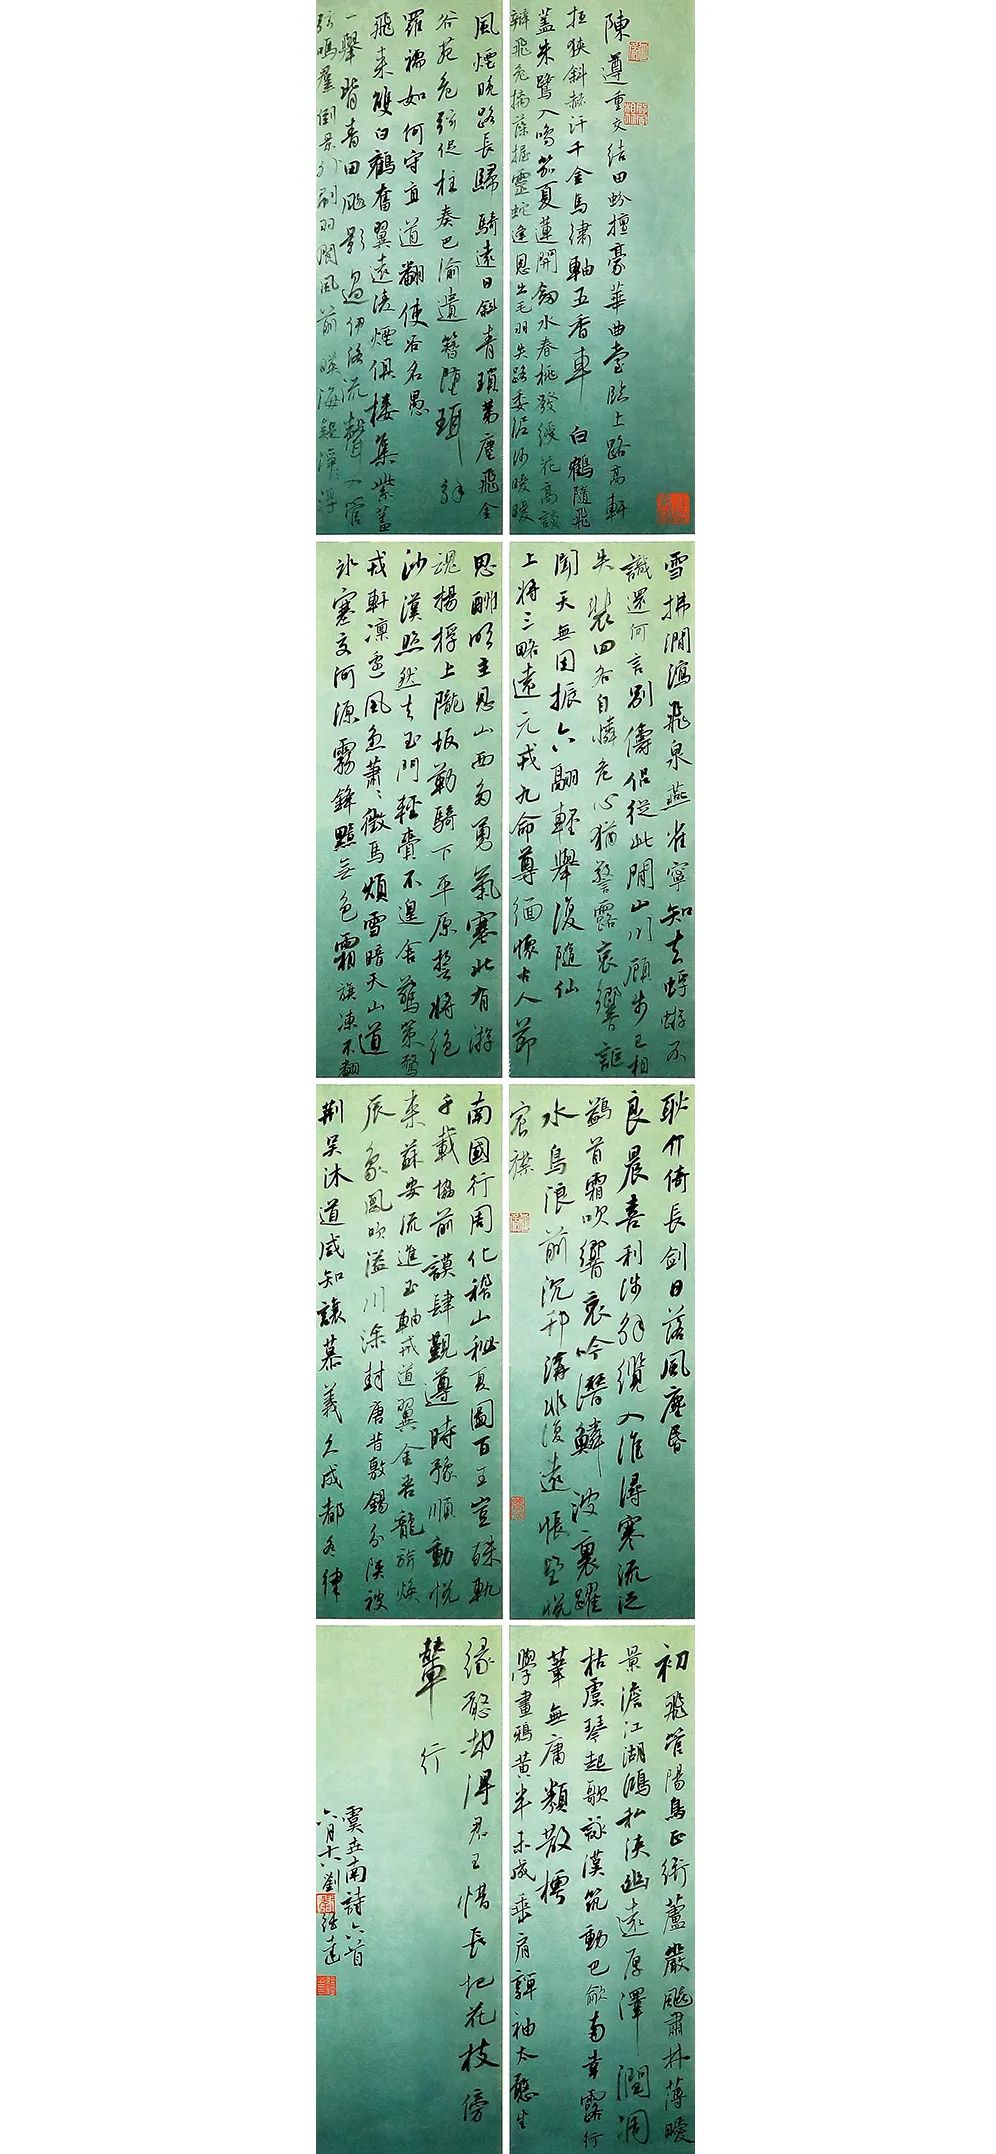 陳遵重交結田蚡擅豪華曲臺臨上路高軒
抵狹斜赭汗千金馬繡軸五香車白鶴隨飛
蓋朱鷺入鳴笳夏蓮開劍水春桃發綬花高談
辯飛兔摛藻握靈蛇逢恩出毛羽失路委泥沙曖曖
風煙晚路長歸騎遠日斜青瑣第塵飛金
谷苑危弦促柱奏巴渝遺簪墮珥解
羅襦如何守直道翻使谷名愚
飛來雙白鶴奮翼遠淩煙俱棲集紫蓋
一舉背青田颺影過伊洛流聲入管
弦鳴羣倒景外刷羽閬風前暎海疑浮
雪拂澗瀉飛泉燕雀寧知去蜉蝣不
識還何言別儔侶從此間山川顧步已相
失裴回各自憐危心猶警露哀響詎
聞天無因振六翮輕舉復隨仙
上將三略遠元戎九命尊緬懷古人節
思酬明主恩山西多勇氣塞北有游
魂揚桴上隴坂勒騎下平原誓將絕
沙漠悠然去玉門輕齎不遑舍驚策騖
戎軒凜邊風急蕭〻徵馬煩雪暗天山道
冰塞交河源霧鋒黯無色霜旗凍不翻
耿介倚長劍日落風塵昏
良晨喜利涉解纜入淮潯寒流泛
鷁首霜吹響哀吟潛鱗波裏躍
水鳥浪前沉邗溝非復遠悵望悅
宸襟
南國行周化稽山秘夏圖百王豈殊軌
千載協前謨肆覲遵時豫順動悅
來蘇安流進玉軸戒道翼金吾龍旂煥
辰象鳳吹溢川塗封唐昔敷錫分陝被
荊吳沐道咸知讓慕義久成都冬律
初飛管陽鳥正銜蘆嚴飈肅林薄曖
景澹江湖鴻私浹幽遠厚澤潤凋
枯虞琴起歌詠漢筑動巴歈南幸露行
葦無庸類散樗
學畫鴉黃半未成垂肩嚲袖太憨生
緣憨却得君王惜長把花枝傍
輦行
虞世南詩六首
六月十六劉